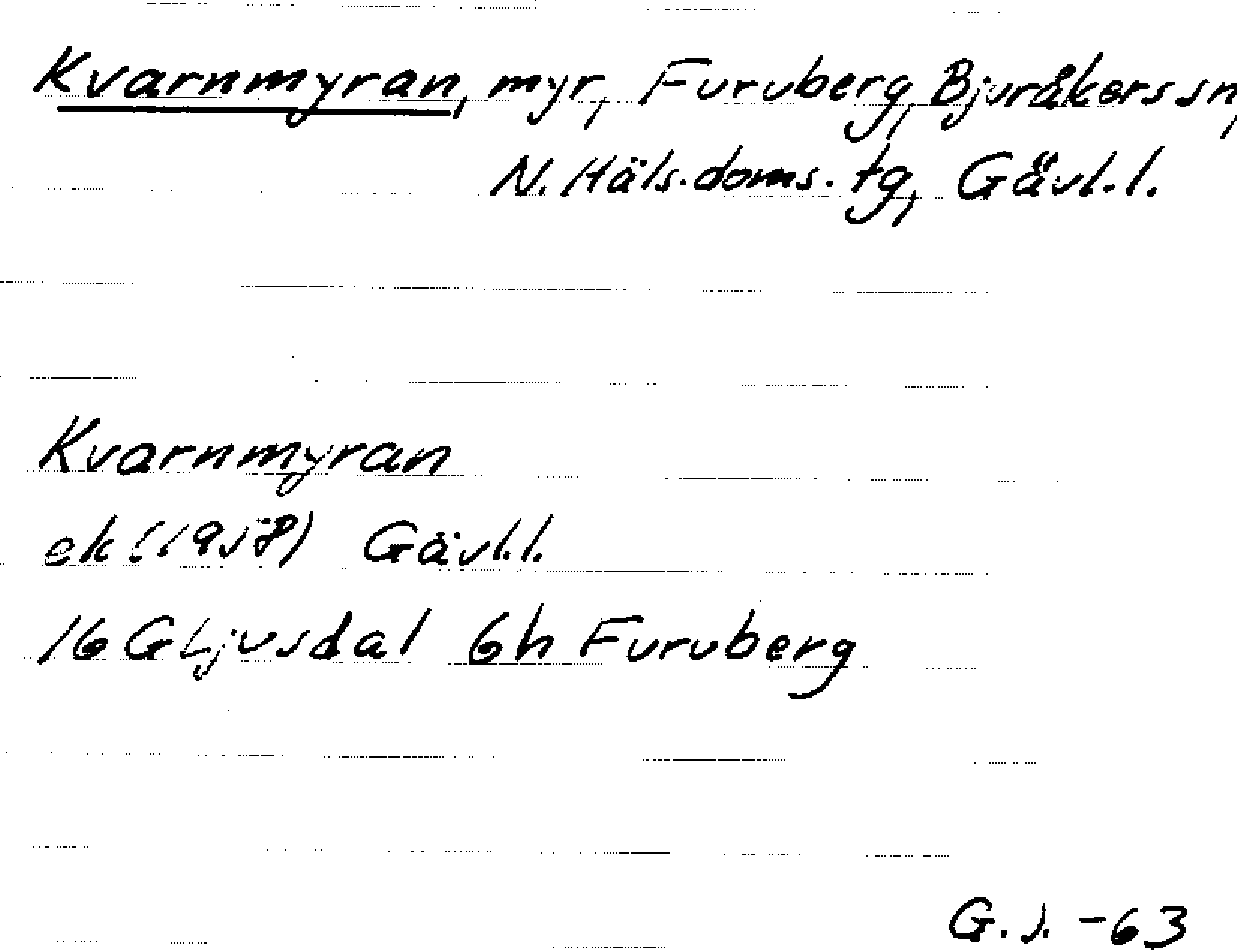 Kvarnmyran, myr, Furuberg, Bjuråkers sn,
N. Häls. doms. tg, Gävl. l.
Kvarnmyran
ek (1958) Gävl. l.
16 G Ljusdal 6h Furuberg
G. J. -63